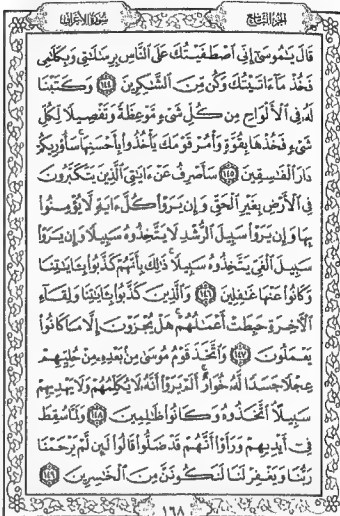 سورة الأعراف
الجزء التاسع
قَالَ يَٰمُوسَىٰٓ إِنِّي ٱصۡطَفَيۡتُكَ عَلَى ٱلنَّاسِ بِرِسَٰلَٰتِي وَبِكَلَٰمِي
فَخُذۡ مَآ ءَاتَيۡتُكَ وَكُن مِّنَ ٱلشَّٰكِرِينَ ١٤٤ وَكَتَبۡنَا
لَهُۥ فِي ٱلۡأَلۡوَاحِ مِن كُلِّ شَيۡءٖ مَّوۡعِظَةٗ وَتَفۡصِيلٗا لِّكُلِّ
شَيۡءٖ فَخُذۡهَا بِقُوَّةٖ وَأۡمُرۡ قَوۡمَكَ يَأۡخُذُواْ بِأَحۡسَنِهَاۚ سَأُوْرِيكُمۡ
دَارَ ٱلۡفَٰسِقِينَ ١٤٥ سَأَصۡرِفُ عَنۡ ءَايَٰتِيَ ٱلَّذِينَ يَتَكَبَّرُونَ
فِي ٱلۡأَرۡضِ بِغَيۡرِ ٱلۡحَقِّ وَإِن يَرَوۡاْ كُلَّ ءَايَةٖ لَّا يُؤۡمِنُواْ
بِهَا وَإِن يَرَوۡاْ سَبِيلَ ٱلرُّشۡدِ لَا يَتَّخِذُوهُ سَبِيلٗا وَإِن يَرَوۡاْ
سَبِيلَ ٱلۡغَيِّ يَتَّخِذُوهُ سَبِيلٗاۚ ذَٰلِكَ بِأَنَّهُمۡ كَذَّبُواْ بِـَٔايَٰتِنَا
وَكَانُواْ عَنۡهَا غَٰفِلِينَ ١٤٦ وَٱلَّذِينَ كَذَّبُواْ بِـَٔايَٰتِنَا وَلِقَآءِ
ٱلۡأٓخِرَةِ حَبِطَتۡ أَعۡمَٰلُهُمۡۚ هَلۡ يُجۡزَوۡنَ إِلَّا مَا كَانُواْ
يَعۡمَلُونَ ١٤٧ وَٱتَّخَذَ قَوۡمُ مُوسَىٰ مِنۢ بَعۡدِهِۦ مِنۡ حُلِيِّهِمۡ
عِجۡلٗا جَسَدٗا لَّهُۥ خُوَارٌۚ أَلَمۡ يَرَوۡاْ أَنَّهُۥ لَا يُكَلِّمُهُمۡ وَلَا يَهۡدِيهِمۡ
سَبِيلًاۘ ٱتَّخَذُوهُ وَكَانُواْ ظَٰلِمِينَ ١٤٨ وَلَمَّا سُقِطَ
فِيٓ أَيۡدِيهِمۡ وَرَأَوۡاْ أَنَّهُمۡ قَدۡ ضَلُّواْ قَالُواْ لَئِن لَّمۡ يَرۡحَمۡنَا
رَبُّنَا وَيَغۡفِرۡ لَنَا لَنَكُونَنَّ مِنَ ٱلۡخَٰسِرِينَ ١٤٩
١٦٨